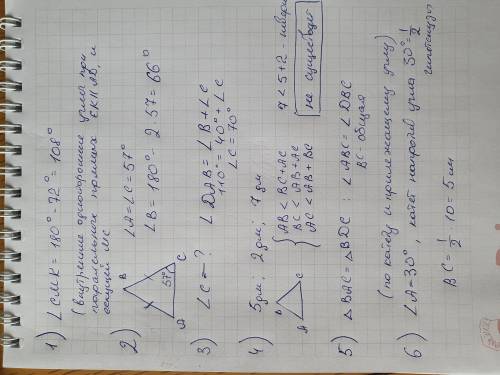 1) ∠CMK = 180° - 72° = 108°
(внутренние односторонние углы при
параллельных прямых EK∥AD, и
секущей MC
2) ∠A = ∠C = 57°
∠B = 180° - 2·57 = 66°
B
57°
C
3) ∠C - ? ∠DAB = ∠B + ∠C
110° = 40° + ∠C
∠C = 70°
4) 5дм; 2дм; 7дм
B
A
C
{ AB < BC + AC
BC < AB + AC
AC < AB + BC
7 < 5 + 2 -
не существует
5) △BAC = △BDC : ∠ABC = ∠DBC
BC - общая
(по катету и прилежащему углу)
6) ∠A = 30°, катет напротив угла 30° = 1/2
гипотенузы
BC = 1/2 · 10 = 5 см